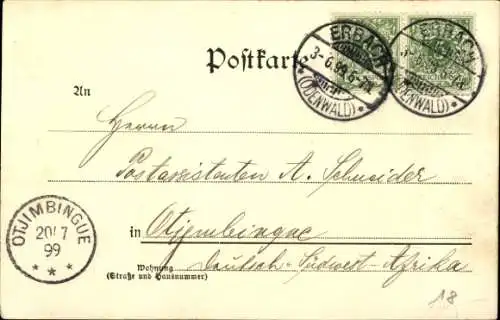 Postkarte
ERBACH
3-6.99.6-7N.
*(ODENWALD)*
ERBACH
(ODENWALD)*
An
Herrn
Postassistenten A. Schneider
in Otjimbingue
Deutsch-Südwest-Afrika
Wohnung
(Straße und Hausnummer)
OTJIMBINGUE
20/7
99
* * *
18-